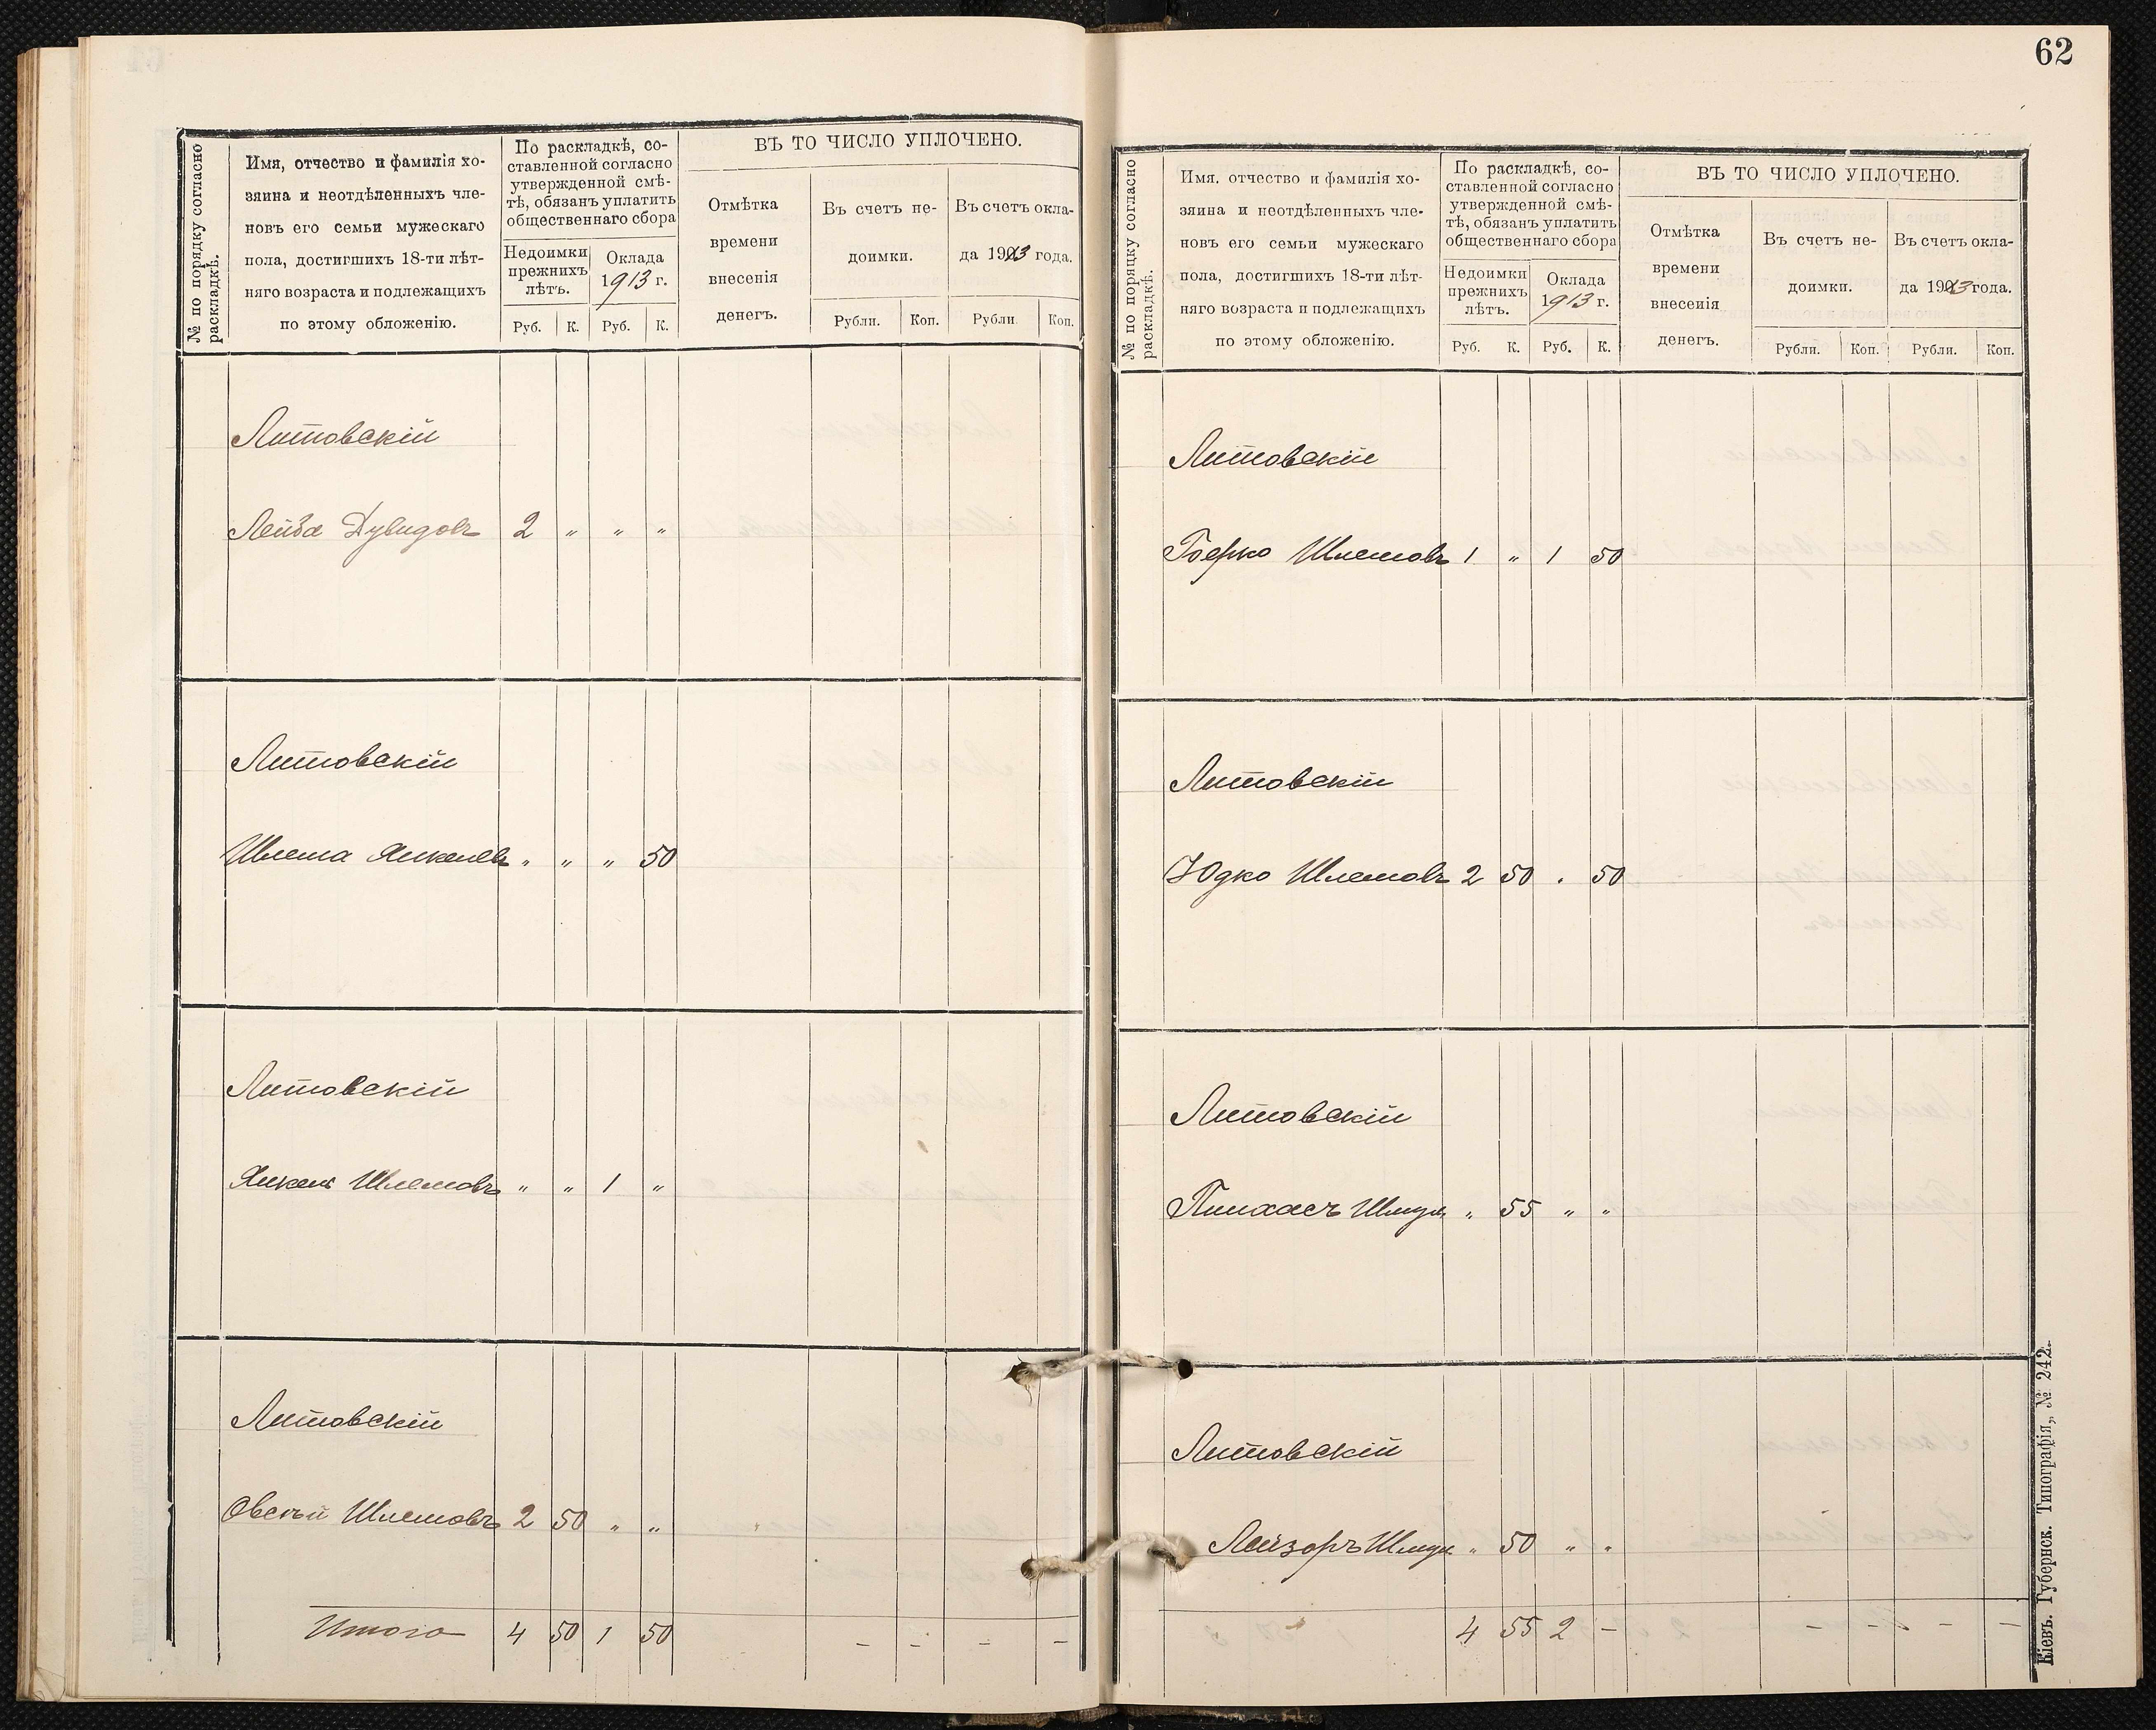 62
№ по порядку согласно раскладкѣ.
Имя, отчество и фамилія хо-
зяина и неотдѣленныхъ чле-
новъ его семьи мужескаго
пола, достигшихъ 18-ти лѣт-
няго возраста и подлежащихъ
по этому обложенію.
По раскладкѣ, со-
ставленной согласно
утвержденной смѣ-
тѣ, обязанъ уплатить
общественнаго сбора
Недоимки
прежнихъ
лѣтъ.
Оклада
1913 г.
Руб. К. Руб. К.
ВЪ ТО ЧИСЛО УПЛОЧЕНО.
Отмѣтка
времени
внесенія
денегъ.
Въ счетъ не-
доимки.
Въ счетъ окла-
да 1913 года.
Рубли. Коп. Рубли. Коп.
Литовскій
Лейба Дувидовъ 2 „ „ „
Литовскій
Шлема Янкелев „ „ „ 50
Литовскій
Янкель Шлемовъ „ „ 1 „
Литовскій
Овсѣй Шлемовъ 2 50 „ „
Итого 4 50 1 50 – – – –
№ по порядку согласно раскладкѣ.
Имя, отчество и фамилія хо-
зяина и неотдѣленныхъ чле-
новъ его семьи мужескаго
пола, достигшихъ 18-ти лѣт-
няго возраста и подлежащихъ
по этому обложенію.
По раскладкѣ, со-
ставленной согласно
утвержденной смѣ-
тѣ, обязанъ уплатить
общественнаго сбора
Недоимки
прежнихъ
лѣтъ.
Оклада
1913 г.
Руб. К. Руб. К.
ВЪ ТО ЧИСЛО УПЛОЧЕНО.
Отмѣтка
времени
внесенія
денегъ.
Въ счетъ не-
доимки.
Въ счетъ окла-
да 1913 года.
Рубли. Коп. Рубли. Коп.
Литовскій
Берко Шлемовъ 1 „ 1 50
Литовскій
Юдко Шлемовъ 2 50 . 50
Литовскій
Пинхасъ Шмул „ 55 „ „
Литовскій
Лейзоръ Шмул „ 50 „ „
4 55 2 – – – – –
Кіевъ. Губернск. Типографія„ № 242.